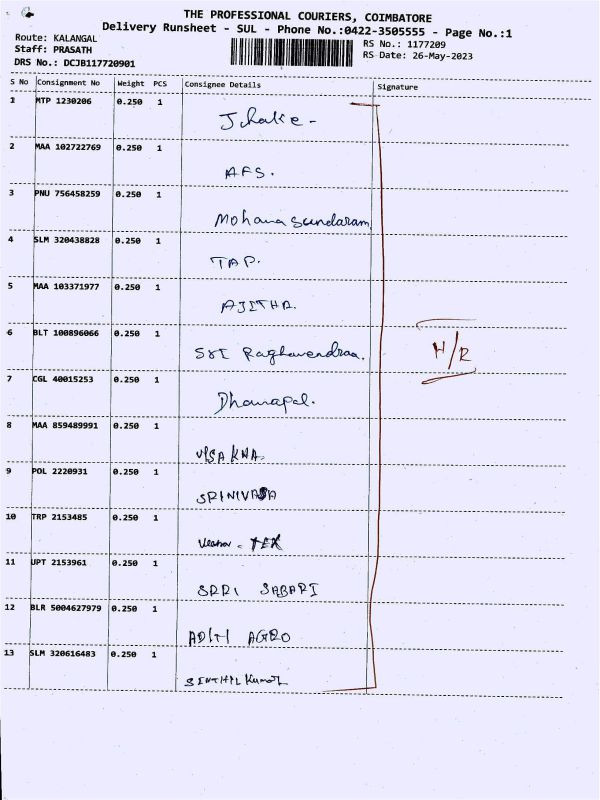 THE PROFESSIONAL COURIERS, COIMBATORE
Delivery Runsheet - SUL - Phone No.:0422-3505555 - Page No.:1
Route: KALANGAL
Staff: PRASATH
DRS No.: DCJB117720901
RS No.: 1177209
RS Date: 26-May-2023
S No Consignment No Weight PCS Consignee Details Signature
1 MTP 1230206 0.250 1
2 MAA 102722769 0.250 1
AFS.
3 PNU 756458259 0.250 1
Mohana Sundaram
4 SLM 320438828 0.250 1
TAP.
5 MAA 103371977 0.250 1
AJITHA.
6 BLT 100896066 0.250 1
SRI Raghavendraa.
H/R
7 CGL 40015253 0.250 1
Dhanapal.
8 MAA 859489991 0.250 1
VISAKHA.
9 POL 2220931 0.250 1
SRINIVASA
10 TRP 2153485 0.250 1
TEX
11 UPT 2153961 0.250 1
SRRI SABARI
12 BLR 5004627979 0.250 1
ADITI AGRO
13 SLM 320616483 0.250 1
SENTHIL Kumar